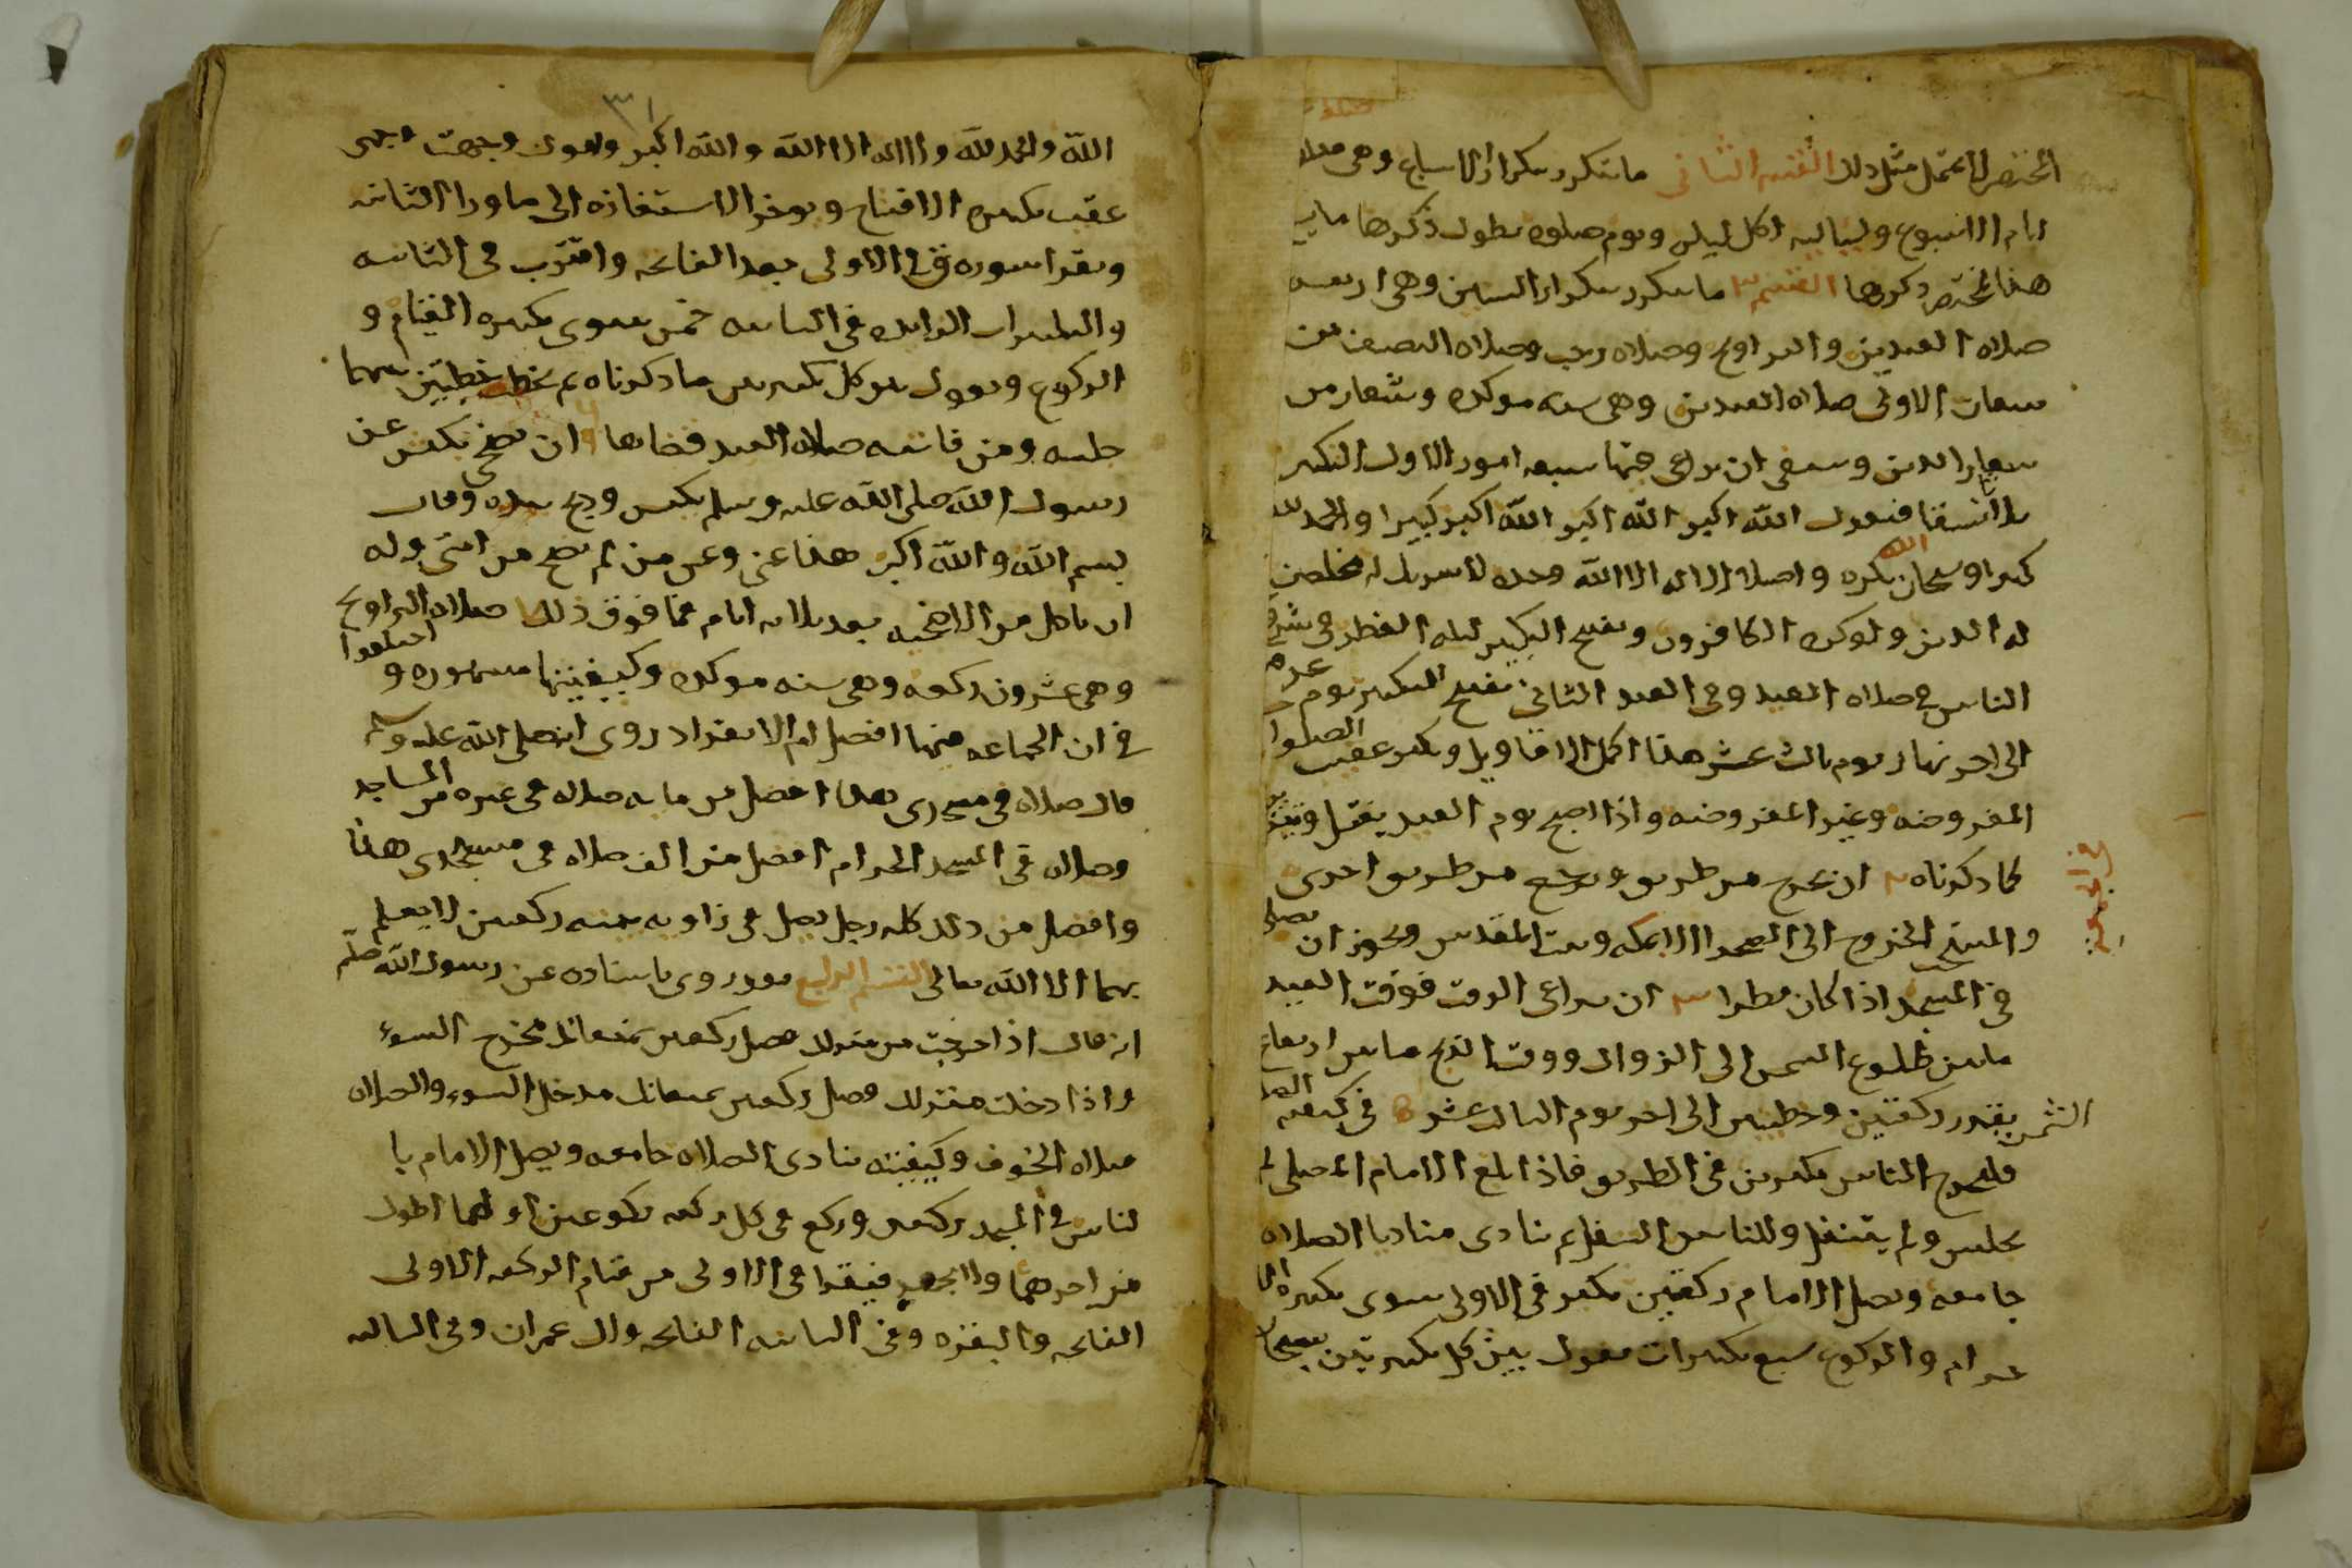 المختصر لا يحتمل مثل ذلك القسم الثاني ما يتكرر بتكرار الاسابيع وهي صلاة
ايام الاسبوع ولياليه لكل ليلة ويوم صلوه يطول ذكرها
هذا المختصر ذكرها القسم ٣ ما يتكرر بتكرار السنين وهي اربعه
صلاه العيدين والتراويح وصلاه رجب وصلاه النصف من
شعبان الاولى صلاه العيدين وهي سنه موكده وشعار من
شعاير الدين وينبغي ان يراعى فيها سبعه امور الاول التكبير
ثلاثا نسقا فيقول الله اكبر الله اكبر الله اكبر كبيرا والحمد لله
كثيرا وسبحان الله بكره واصيلا لا اله الا الله وحده لا شريك له مخلصين
له الدين ولو كره الكافرون ويفتح التكبير ليله الفطر
الناس في صلاه العيد وفي العيد الثاني يفتح التكبير يوم عرفه
الى اخر نهار يوم ثالث عشر هذا اكمل الاقاويل ويكبر عقيب الصلوات
المفروضه وغير المفروضه واذا اصبح يوم العيد يغتسل
كما ذكرناه ٣ ان يخرج من طريق ويرجع من طريق اخرى
في العيدين
والمستحب الخروج الى الصحرا الا بمكه وبيت المقدس ويجوز ان يصلي
في المسجد اذا كان مطرا ان يراعى الوقت فوقت العيد
ما بين طلوع الشمس الى الزوال ووقت الذبح ما بين ارتفاع
الشمس بقدر ركعتين وخطبتين الى اخر يوم الثالث عشر في كيفيه الصلاه
فليخرج الناس مكبرين في الطريق فاذا بلغ الامام المصلى لم
يجلس ولم يتنفل وللناس التنفل ثم ينادي مناديا الصلاه
جامعه ويصلي الامام ركعتين يكبر في الاولى سوى تكبيره الا
حرام والركوع سبع تكبيرات يقول بين كل تكبيرتين سبحان
٣١
الله والحمد لله ولا اله الا الله والله اكبر ويقول وجهت وجهي
عقب تكبيره الافتتاح ويوخر الاستعاذه الى ما ورا الثامنه
ويقرا سوره ق في الاولى بعد الفاتحه واقتربت في الثانيه
والتكبيرات الزايده في الثانيه خمس سوى تكبيره القيام و
الركوع ويقول بين كل تكبيرتين ما ذكرناه ثم يخطب خطبتين بينهما
جلسه ومن فاتته صلاه العيد قضاها وان يضحي بكبش عن
رسول الله صلى الله عليه وسلم بكبش وذبح بيده وقال
بسم الله والله اكبر هذا عني وعن من لم يضح من امتي وله
ان ياكل من الاضحيه بعد ثلاثه ايام فما فوق ذلك صلاه التراويح
وهي عشرون ركعه وهي سنه موكده وكيفيتها مشهوره و اختلفوا
في ان الجماعه فيها افضل ام الانفراد روي انه صلى الله عليه وسلم
قال صلاه في مسجدي هذا افضل من مايه صلاه في غيره من المساجد
وصلاه في المسجد الحرام افضل من الف صلاه في مسجدي هذا
وافضل من ذلك كله رجل يصلي في زاويه بيته ركعتين لا يعلم
بهما الا الله تعالى القسم الرابع فقد روي باسناده عن رسول الله صلم
انه قال اذا خرجت من منزلك فصل ركعتين يمنعانك مخرج السوء
واذا دخلت منزلك فصل ركعتين يمنعانك مدخل السوء والصلاه
صلاه الخسوف وكيفيته ينادى الصلاه جامعه ويصل الامام با
لناس في المسجد ركعتين وركع في كل ركعه ركوعين اولهما اطول
من اخرهما ولا يجهر فيقرا في الاولى من قيام الركعه الاولى
الفاتحه والبقره وفي الثانيه الفاتحه وال عمران وفي الثالثه